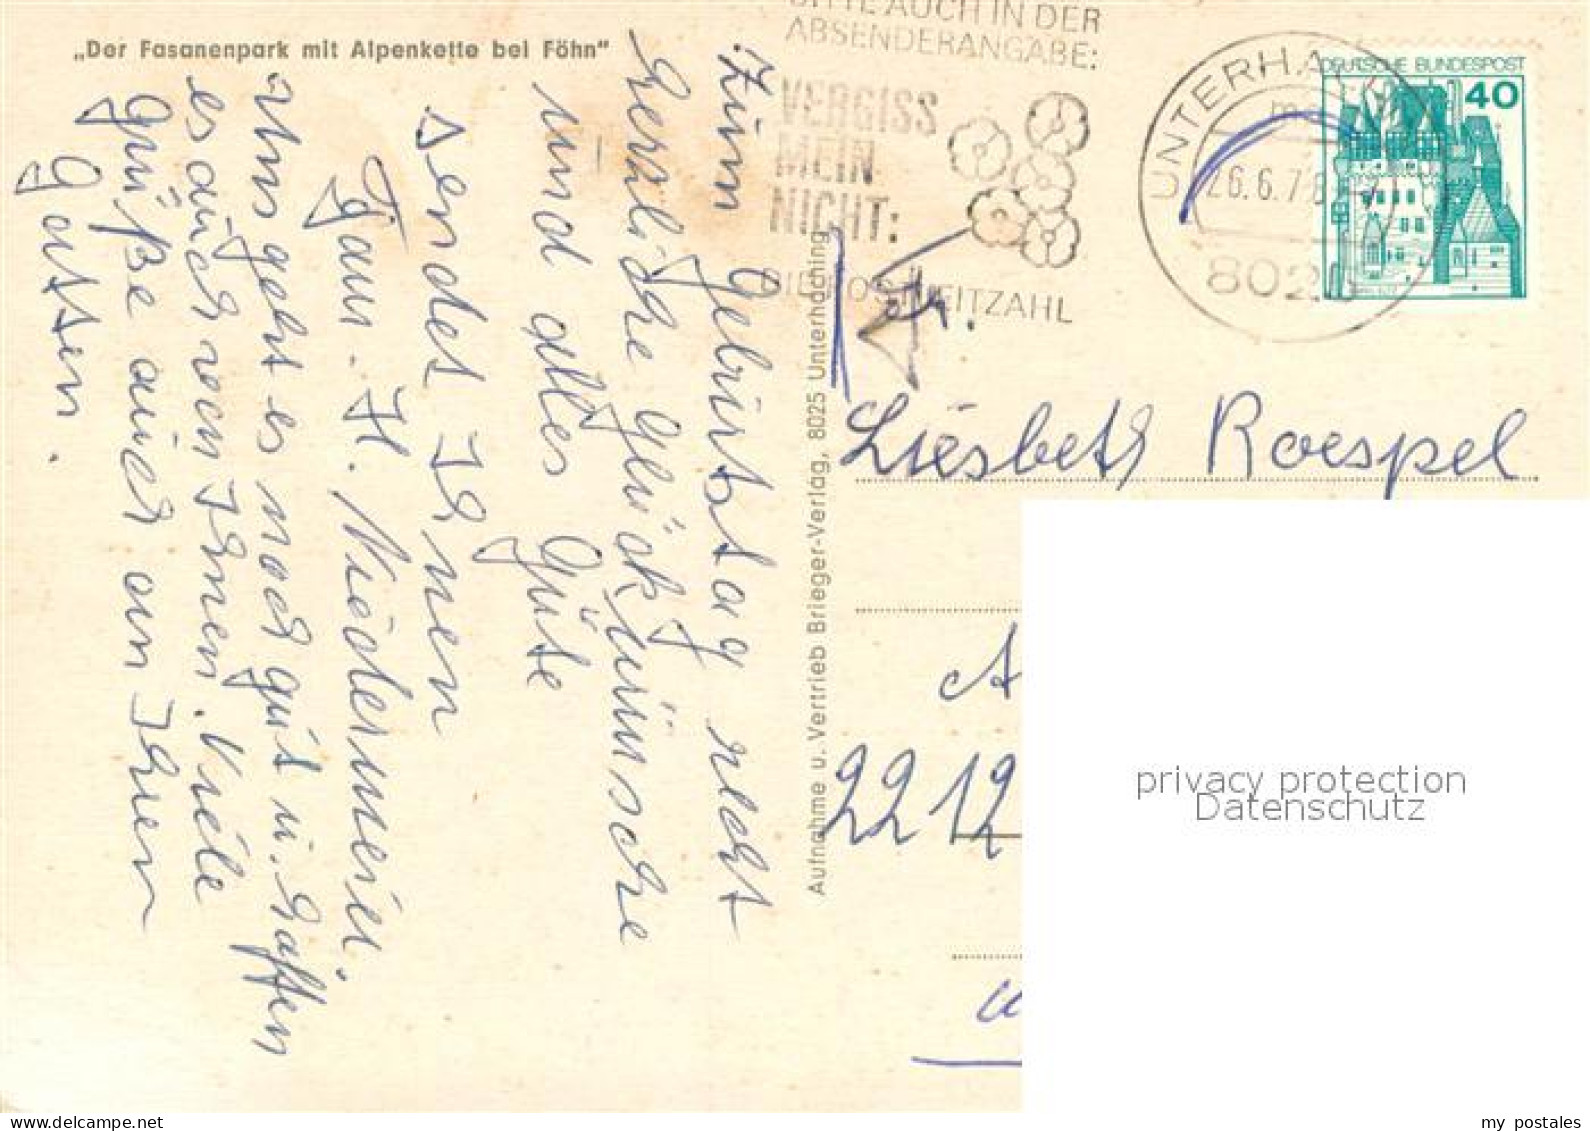 „Der Fasanenpark mit Alpenkette bei Föhn"
Zum Geburtstag recht
herzliche Glückwünsche
und alles Gute
sendet Ihnen
Fam. H. Niedermeier.
Uns geht es noch gut u. hoffen
es auch von Ihnen. Viele
Grüße auch an Ihren
Gatten.
Aufnahme u. Vertrieb Brieger-Verlag, 8025 Unterhaching
BITTE AUCH IN DER
ABSENDERANGABE:
VERGISS
MEIN
NICHT:
DIE POSTLEITZAHL
UNTERHA
26.6.78
802
DEUTSCHE BUNDESPOST
40
Fr.
Liesbeth Roespel
A
2212
privacy protection
Datenschutz
my postales